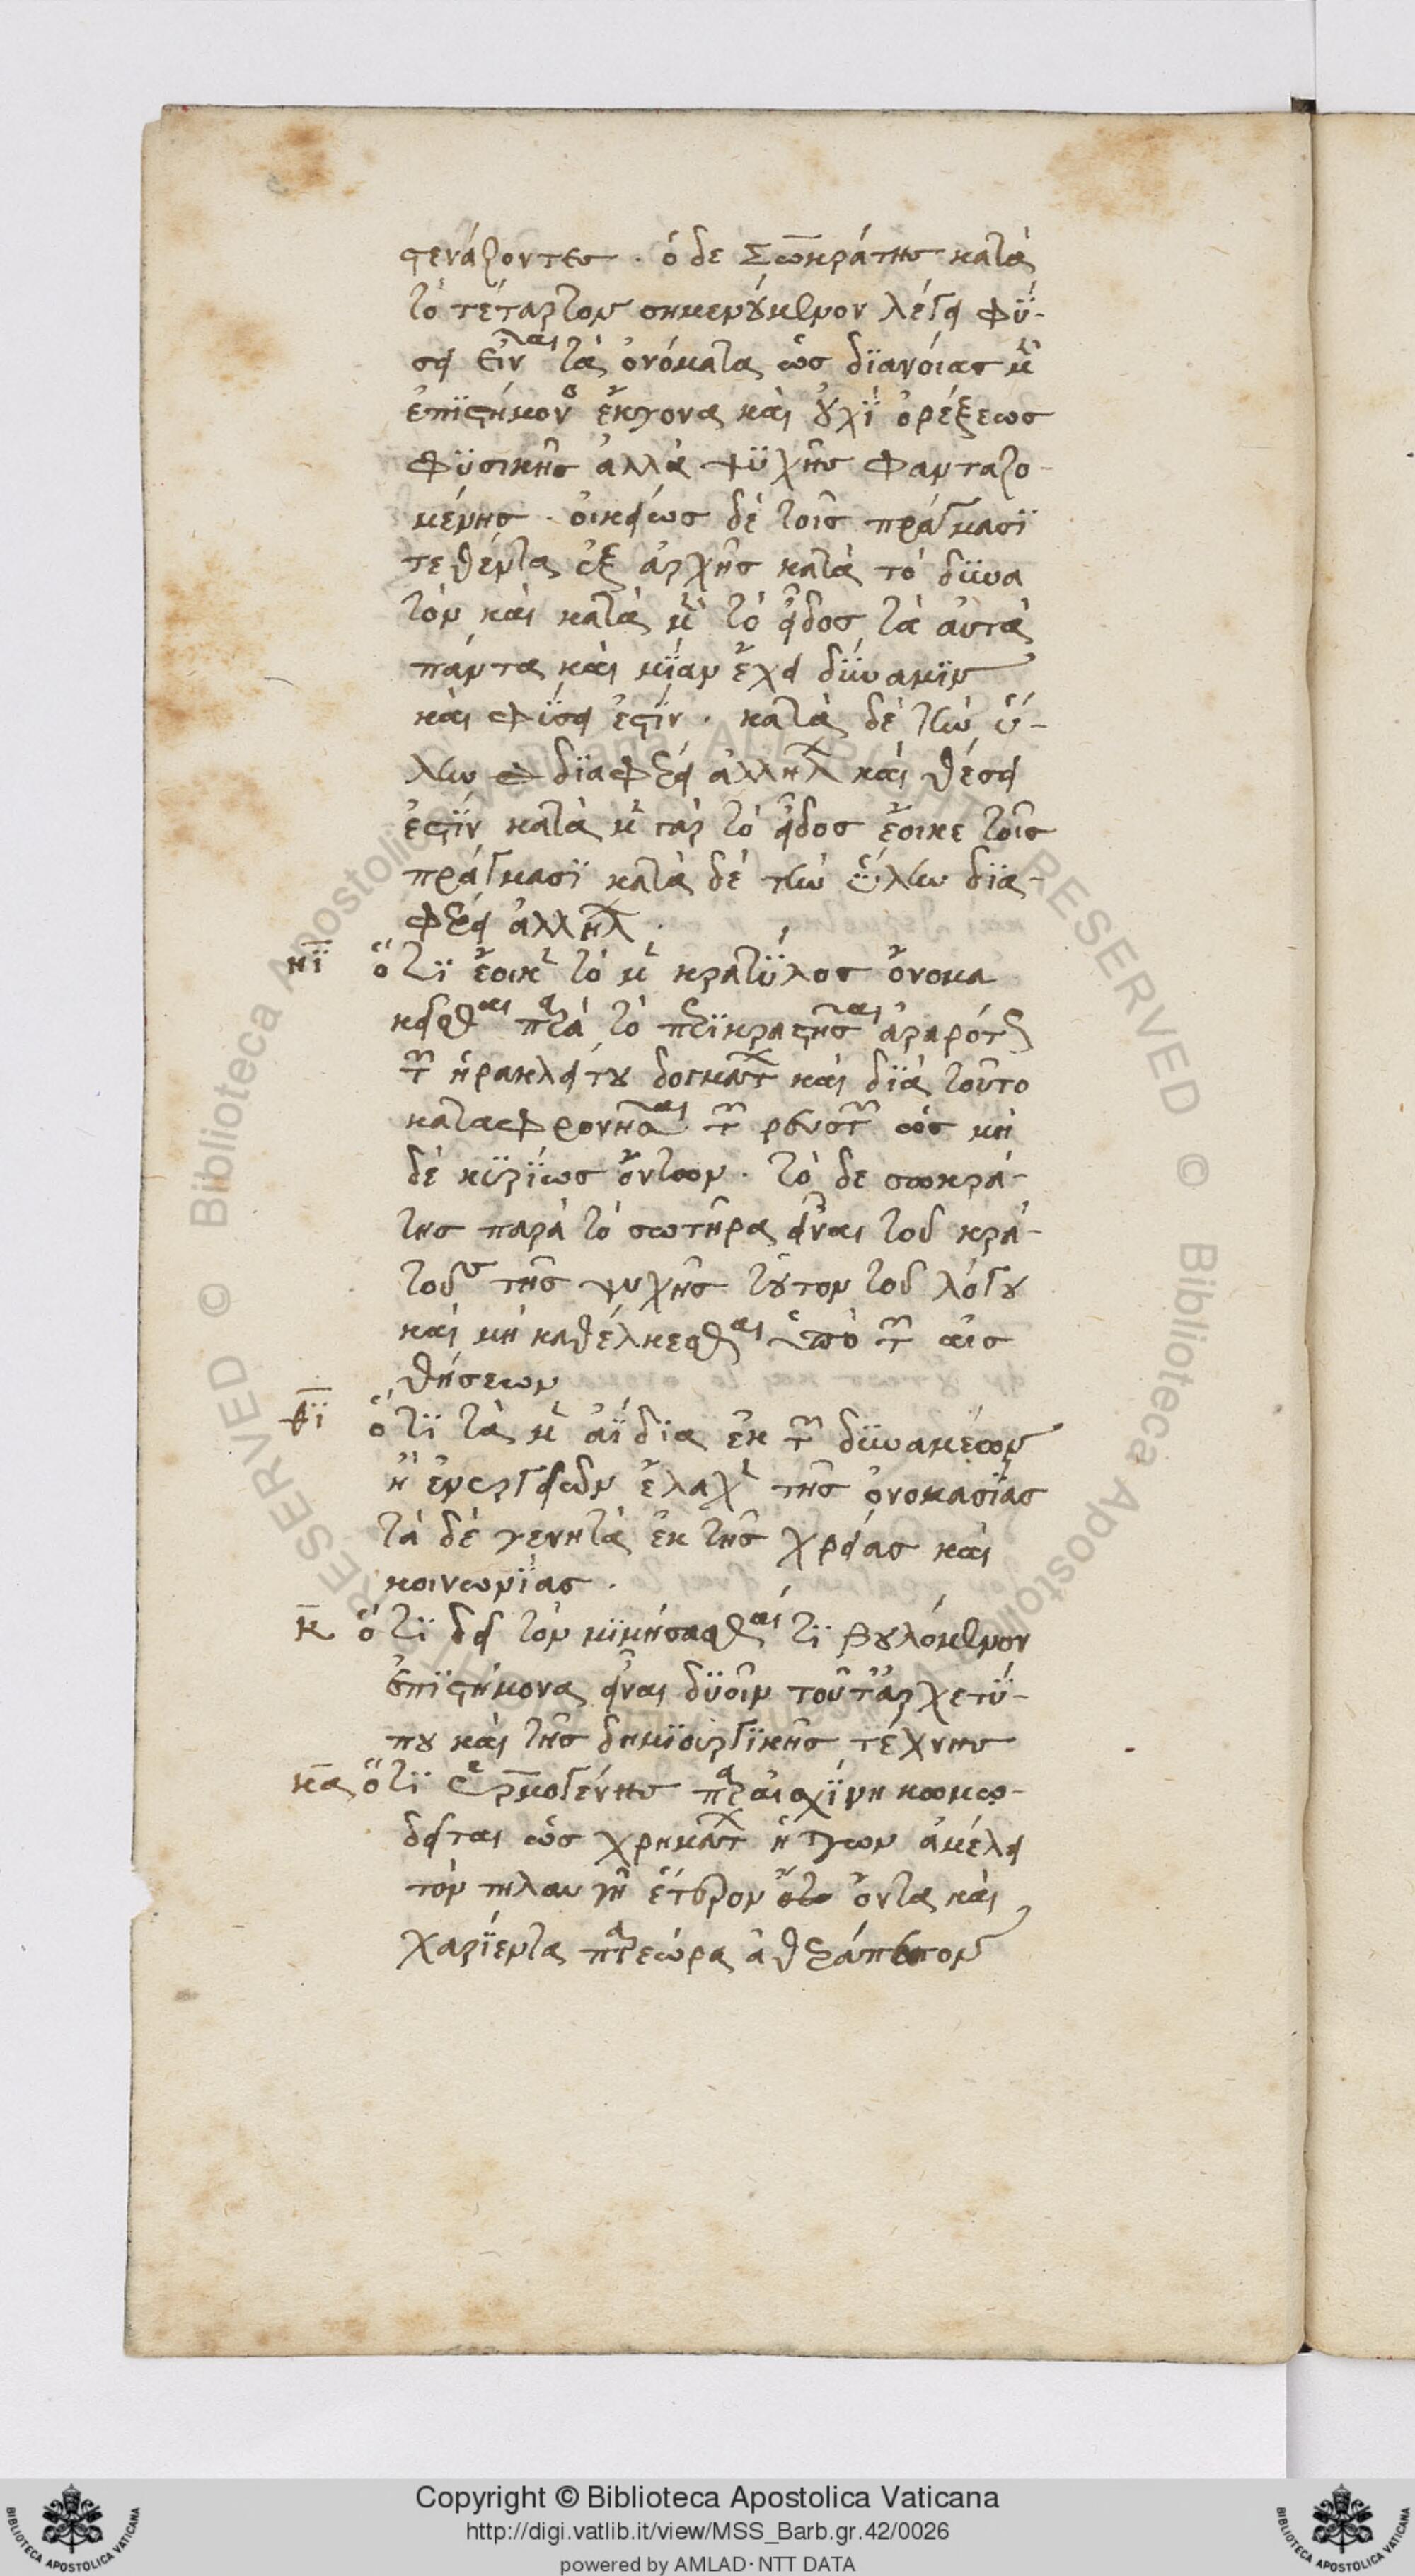 στενάζοντες. ὁ δε Σωκράτης κατὰ
τὸ τέταρτον σημενούμενον λέγει φύ-
σει εἶναι τὰ ὀνόματα ὡς διανοίας μὲν
ἐπιστήμονος ἔκγονα καὶ οὐχὶ ὀρέξεως
φυσικῆς ἀλλὰ ψυχῆς φανταζο-
μένης. οἰκείως δὲ τοῖς πράγμασι
τεθέντα ἐξ ἀρχῆς κατὰ τὸ δυνα
τὸν καὶ κατὰ μὲν τὸ εἶδος τὰ αὐτὰ
πάντα καὶ μίαν ἔχει δύναμιν
καὶ φύσει ἐστίν. κατὰ δὲ τὴν ὕ-
λην διαφέρει ἀλλήλων καὶ θέσει
ἐστίν κατὰ μὲν γὰρ τὸ εἶδος ἔοικε τοῖς
πράγμασι κατὰ δὲ τὴν ὕλην δια-
φέρει ἀλλήλων.
ιη ὅτι ἔοικεν τὸ μὲν κρατύλος ὄνομα
κεῖσθαι παρὰ τὸ περικρατῆσαι ἀραρότως
τῶν ἡρακλείτου δογμάτων καὶ διὰ τοῦτο
καταφρονῆσαι τῶν ῥευστῶν ὡς μη
δὲ κυρίως ὄντων. τὸ δε σωκρά-
της παρὰ τὸ σωτῆρα εἶναι τοῦ κρά-
τους τῆς ψυχῆς τοῦτον τοῦ λόγου
καὶ μὴ καθέλκεσθαι ὑπὸ τῶν αἰσ
θήσεων
ιθ ὅτι τὰ μὲν ἀΐδια ἐκ τῶν δυνάμεων
ἢ ἐνεργειῶν ἔλαχεν τῆς ὀνομασίας
τὰ δὲ γενητὰ ἐκ τῆς χρείας καὶ
κοινωνίας.
κ ὅτι δεῖ τὸν μιμήσασθαι τι βουλόμενον
ἐπιστήμονα εἶναι δυοῖν τοῦ τ' ἀρχετύ-
που καὶ τῆς δημιουργικῆς τέχνης
κα ὅτι Ἑρμογένης παρ' αἰσχίνη κωμῳ-
δεῖται ὡς χρημάτων ἥττων ἀμέλει
τὸν τηλαυγῆ ἑταῖρον ὄντα καὶ
χαρίεντα παρεώρα ἀθεράπευτον